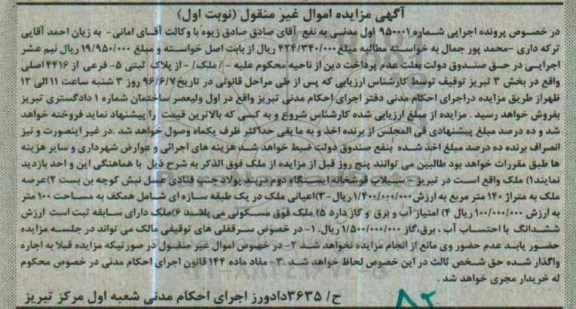 آگهی مزایده اموال غیر منقول (نوبت اول)
در خصوص پرونده اجرایی شماره ۹۵۰۰۰۱ اول مدنی به نفع آقای صادق صادق زیوه با وکالت آقای امانی- به زیان احمد آقایی
ترکه داری -محمد پور جمال به خواسته مطالبه مبلغ ۴۲۴/۳۴۰/۰۰۰ ریال از بابت اصل خواسته و مبلغ ۱۹/۹۵۰/۰۰۰ ریال نیم عشر
اجرایی در حق صندوق دولت بعلت عدم پرداخت دین از ناحیه محکوم علیه -/ ملک/- از پلاک ثبتی ۵- فرعی از ۴۴۱۶اصلی
واقع در بخش ۳ تبریز توقیف توسط کارشناس ارزیابی که پس از طی مراحل قانونی در تاریخ ۹۶/۶/۷ روز ۳ شنبه ساعت ۱۱الی ۱۲
ظهراز طریق مزایده دراجرای احکام مدنی دفتر اجرای احکام مدنی تبریز واقع در اول ولیعصر ساختمان شماره ۱ دادگستری تبریز
بفروش خواهد رسید . مزایده از مبلغ ارزیابی شده کارشناس شروع و به کسی که بالاترین قیمت را پیشنهاد نماید فروخته خواهد
شد و ده درصد مبلغ پیشنهادی فی المجلس از برنده اخذ و به ما بقی حداکثر ظرف یکماه وصول خواهد شد .در غیر اینصورت و نیز
انصراف برنده ده درصد مبلغ اخذ شده بنفع صندوق دولت ضبط خواهد شد هزینه های اجرائی و عوارض شهرداری و سایر هزینه
ها طبق مقررات خواهد بود طالبین می توانند پنج روز قبل از مزایده از ملک فوق الذکر به شرح ذیل با هماهنگی این و احد بازدید
نمایند۱) ملک واقع است در تبریز - سیلاب قوشخانه ایستگاه دوم دربند پولاد جنب قنادی عسل نبش کوچه بن بست ۲)عرصه
ملک به متراژ ۱۴۰ متر مربع به ارزش ۱/۴۰۰/۰۰۰/۰۰۰ ریال-۳)اعیانی ملک در یک طبقه سازه ای شامل همکف به مساحت ۱۰۰ متر
به ارزش ۱۰۰/۰۰۰/۰۰۰ ریال ۴) امتیاز آب و برق و گاز دارد ۵) ملک فوق مسکونی می باشد ۶)ملک دارای سابقه ثبت است ارزش
ششدانگ با احتساب آب ، برق،گاز ۱/۵۰۰/۰۰۰/۰۰۰ ریال. ۱- در خصوص سرقفلی های توقیفی مالک می تواند در جلسه مزایده
حضور یابد عدم حضور وی مانع از انجام مزایده نخواهد شد ۲- در خصوص اموال غیر منقول در صورتیکه مزایده قبلا به اجاره
واگذار شده حق شخص ثالث در این خصوص لحاظ خواهد شد .۳- مفاد ماده ۱۴۴ قانون اجرای احکام مدنی در خصوص محکوم
له خریدار مجری خواهد شد .
ح/ ۳۶۳۵دادورز اجرای احکام مدنی شعبه اول مرکز تبریز